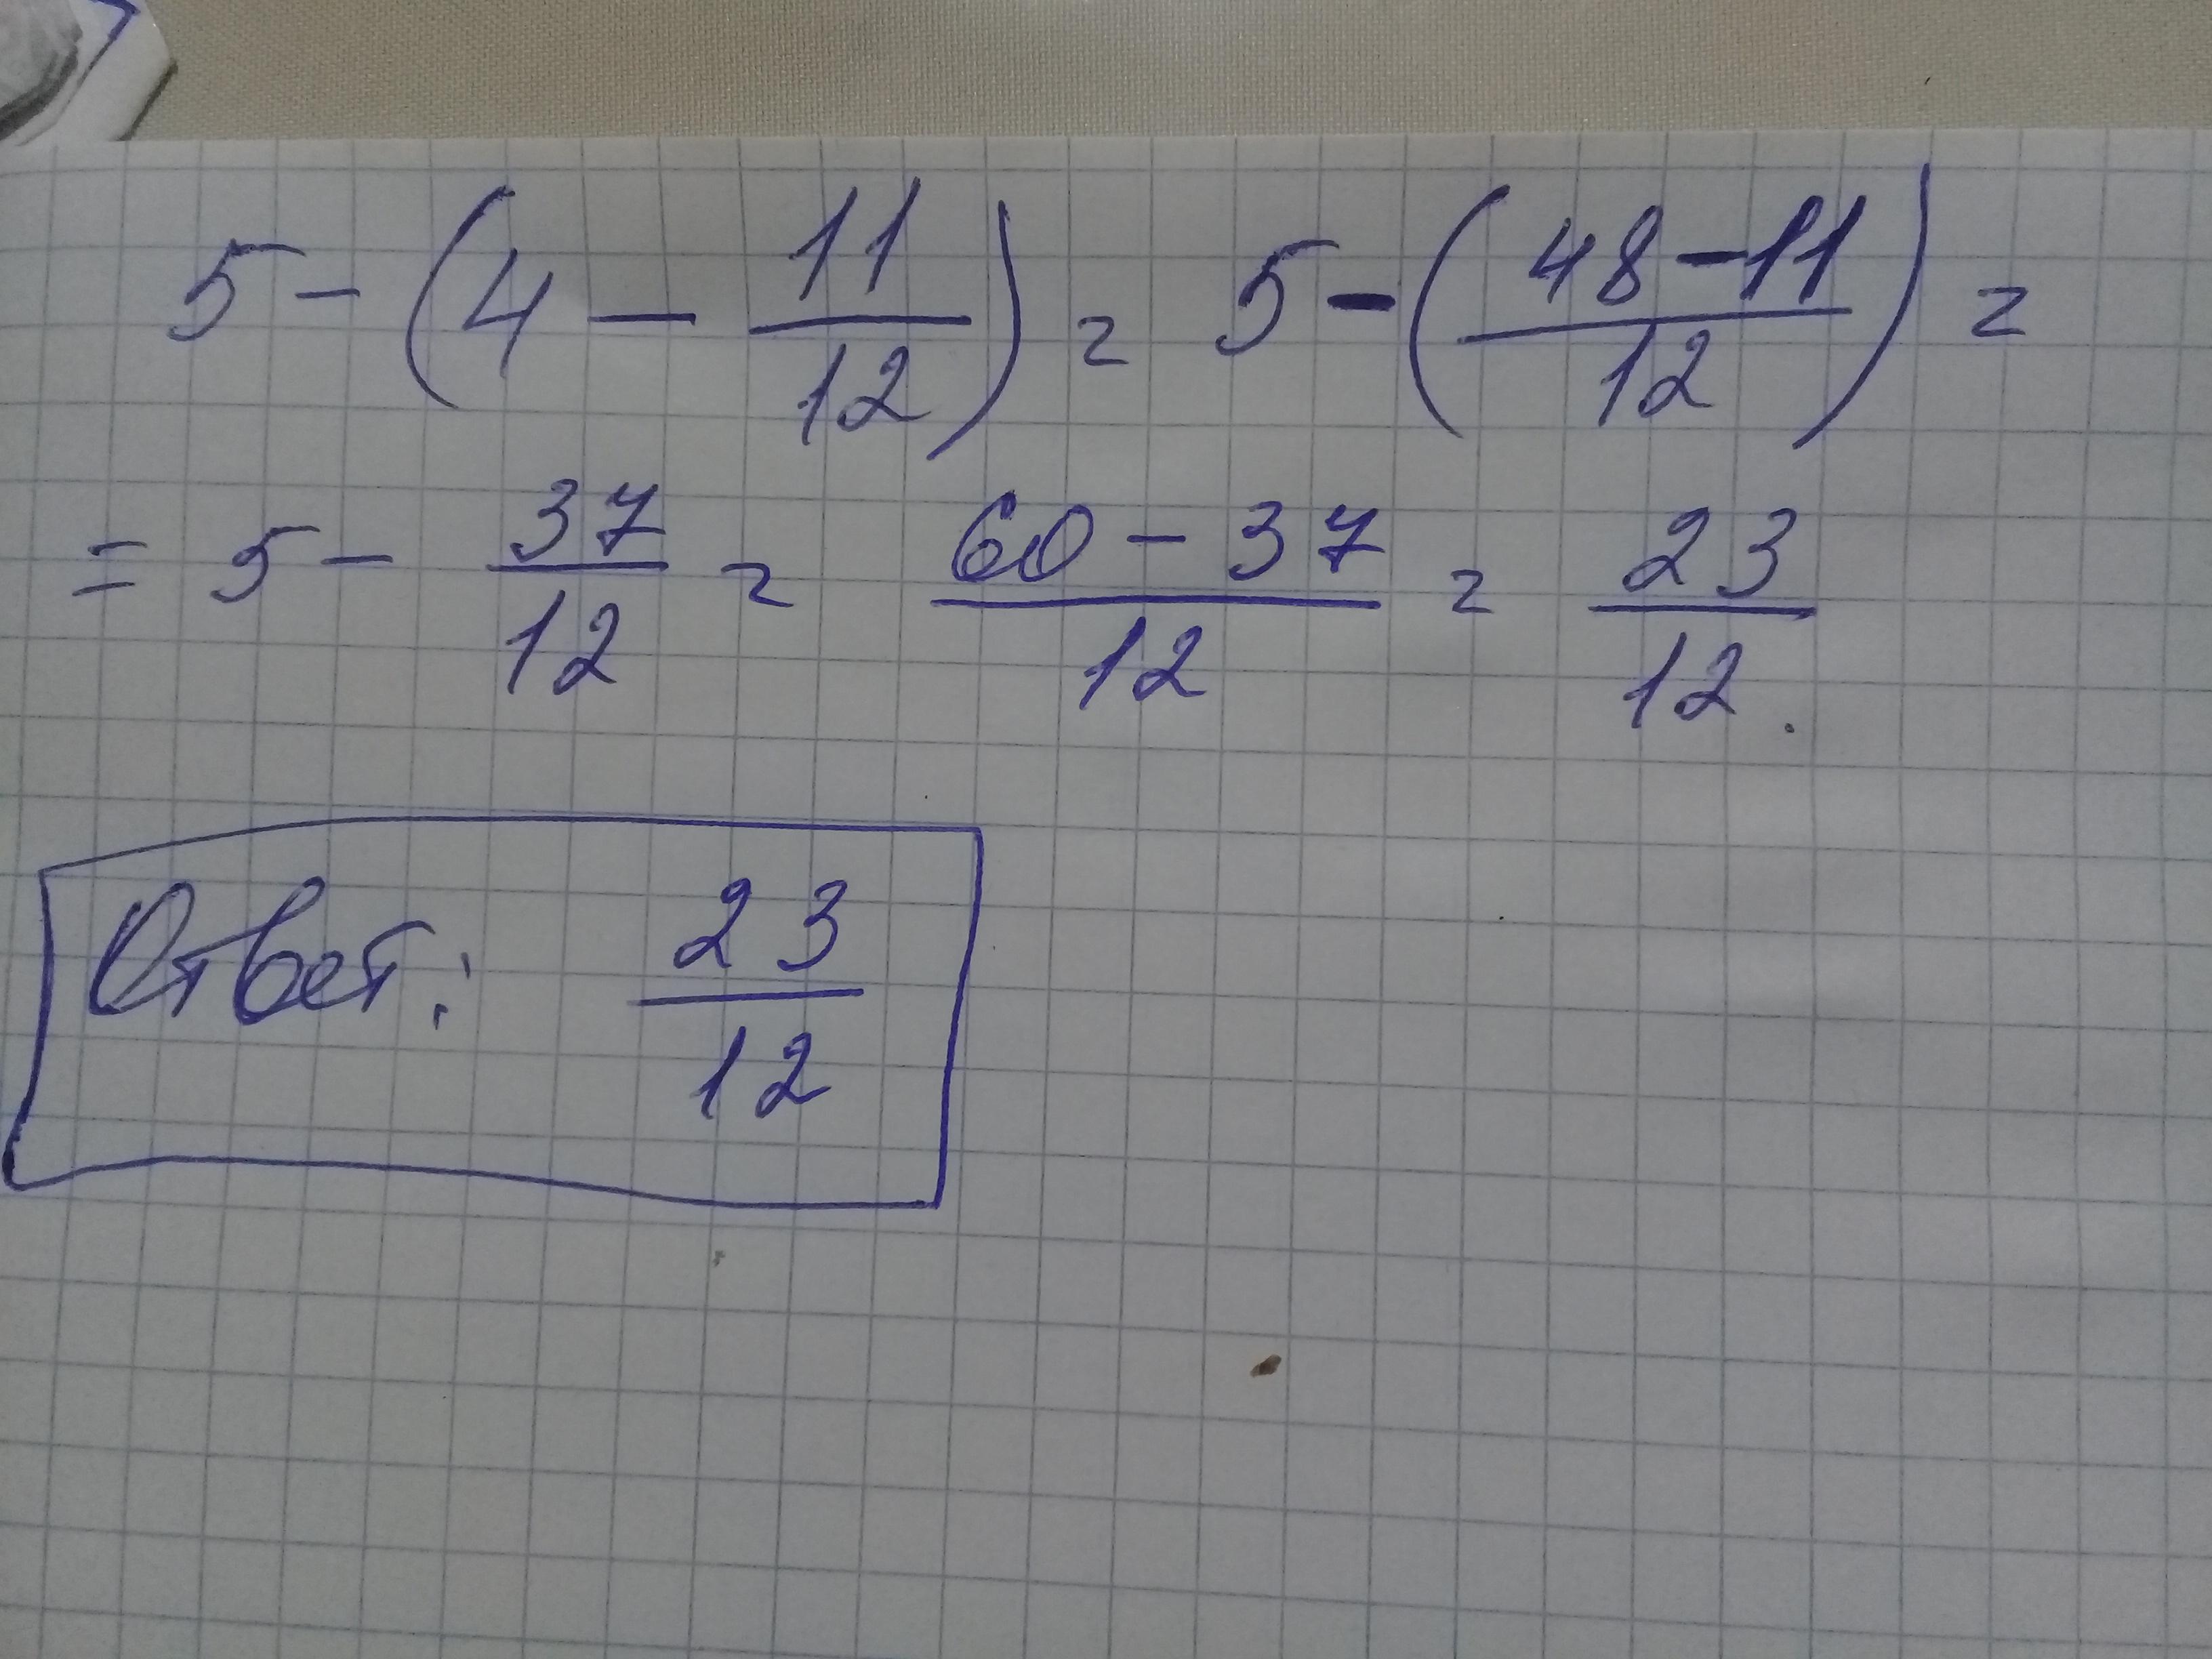 5 - (4 - 11/12) = 5 - (48 - 11/12) =
= 5 - 37/12 = 60 - 37/12 = 23/12.
Ответ: 23/12